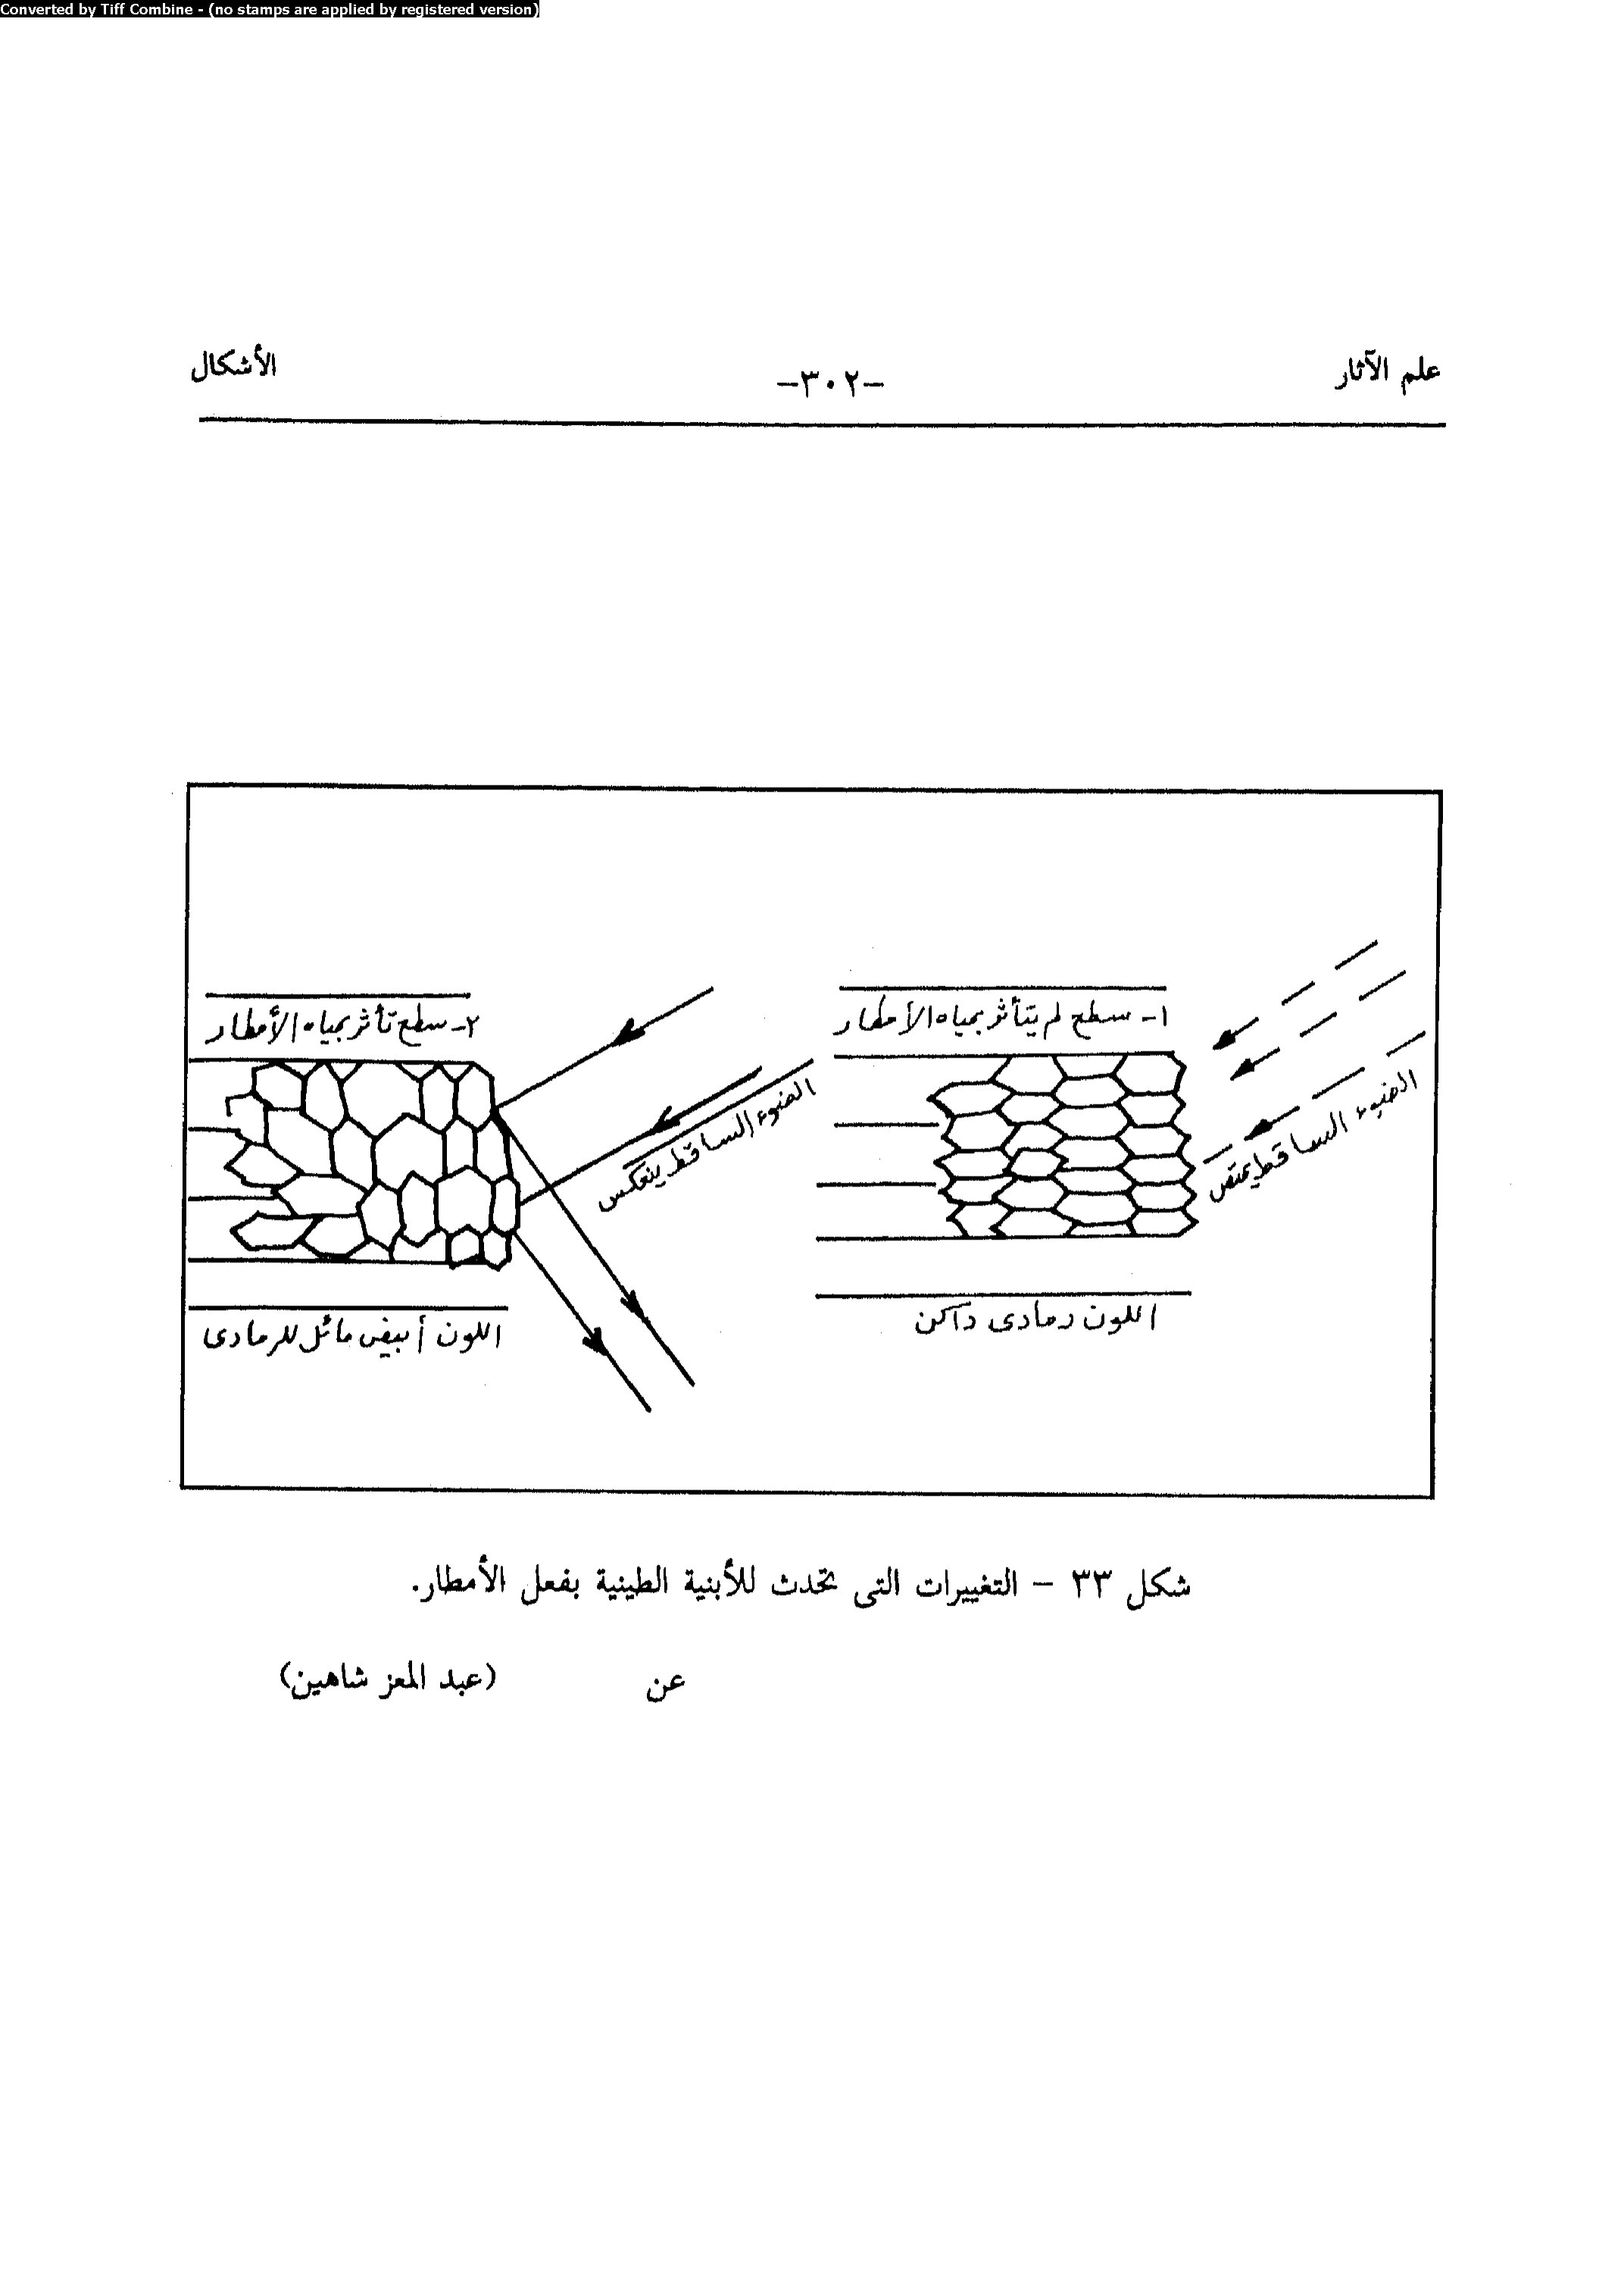 Converted by Tiff Combine - (no stamps are applied by registered version)
علم الآثار
-٣٠٢-
الأشكال
١- سطح لم يتأثر بمياه الأمطار
الضوء الساقط يمتص
اللون رمادى داكن
٢- سطح تأثر بمياه الأمطار
الضوء الساقط ينعكس
اللون أبيض مائل للرمادى
شكل ٣٣ - التغييرات التى تحدث للأبنية الطينية بفعل الأمطار.
عن (عبد المعز شاهين)